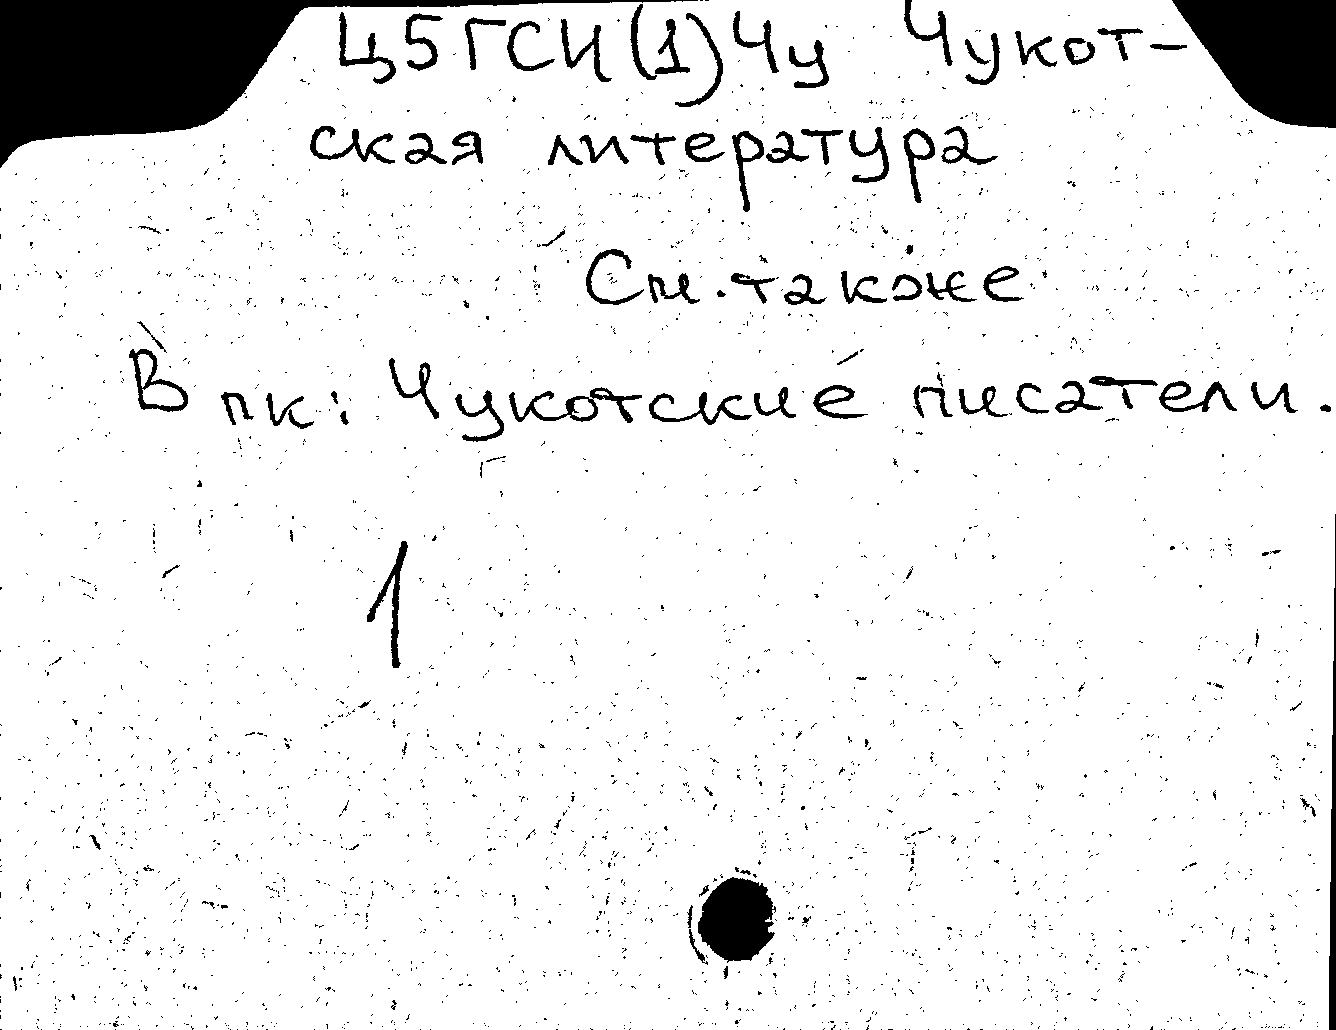 Ц5ГСЧ(1)Чу Чукот-
ская литература
См. также
В пк: Чукотские писатели.
1